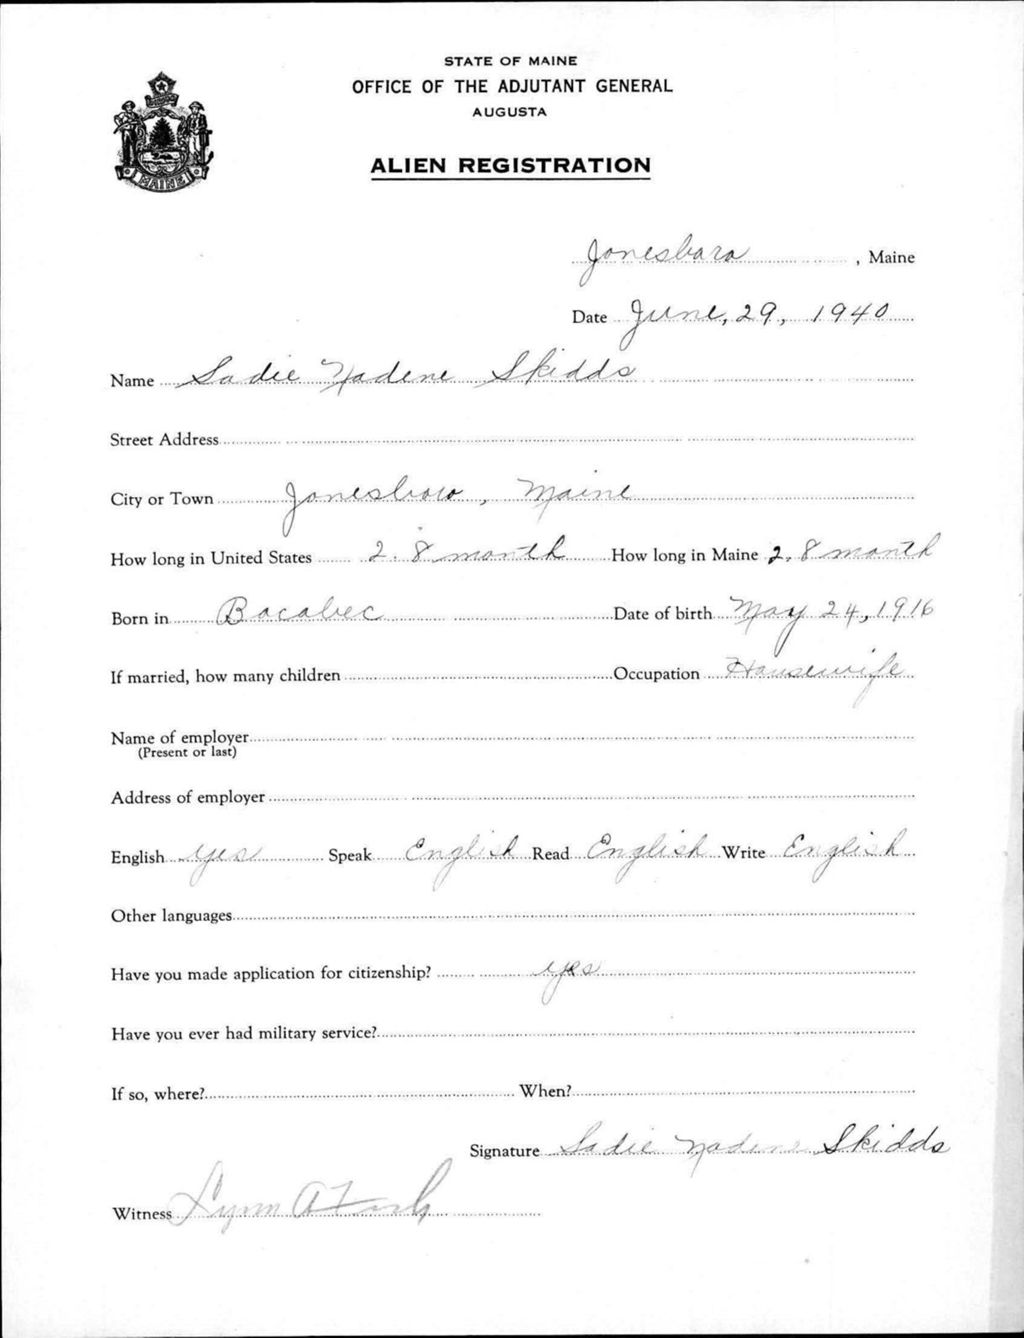 STATE OF MAINE
OFFICE OF THE ADJUTANT GENERAL
AUGUSTA
MAINE
ALIEN REGISTRATION
Jonesboro, Maine
Date June, 29, 1940
Name Sadie Nadene Skidds
Street Address
City or Town Jonesboro, Maine
How long in United States 2. 8 month How long in Maine 2. 8 month
Born in Bocabec Date of birth May 24, 1916
If married, how many children Occupation Housewife
Name of employer
(Present or last)
Address of employer
English yes Speak English Read English Write English
Other languages
Have you made application for citizenship? yes
Have you ever had military service?
If so, where? When?
Signature Sadie Nadene Skidds
Witness Lynn A